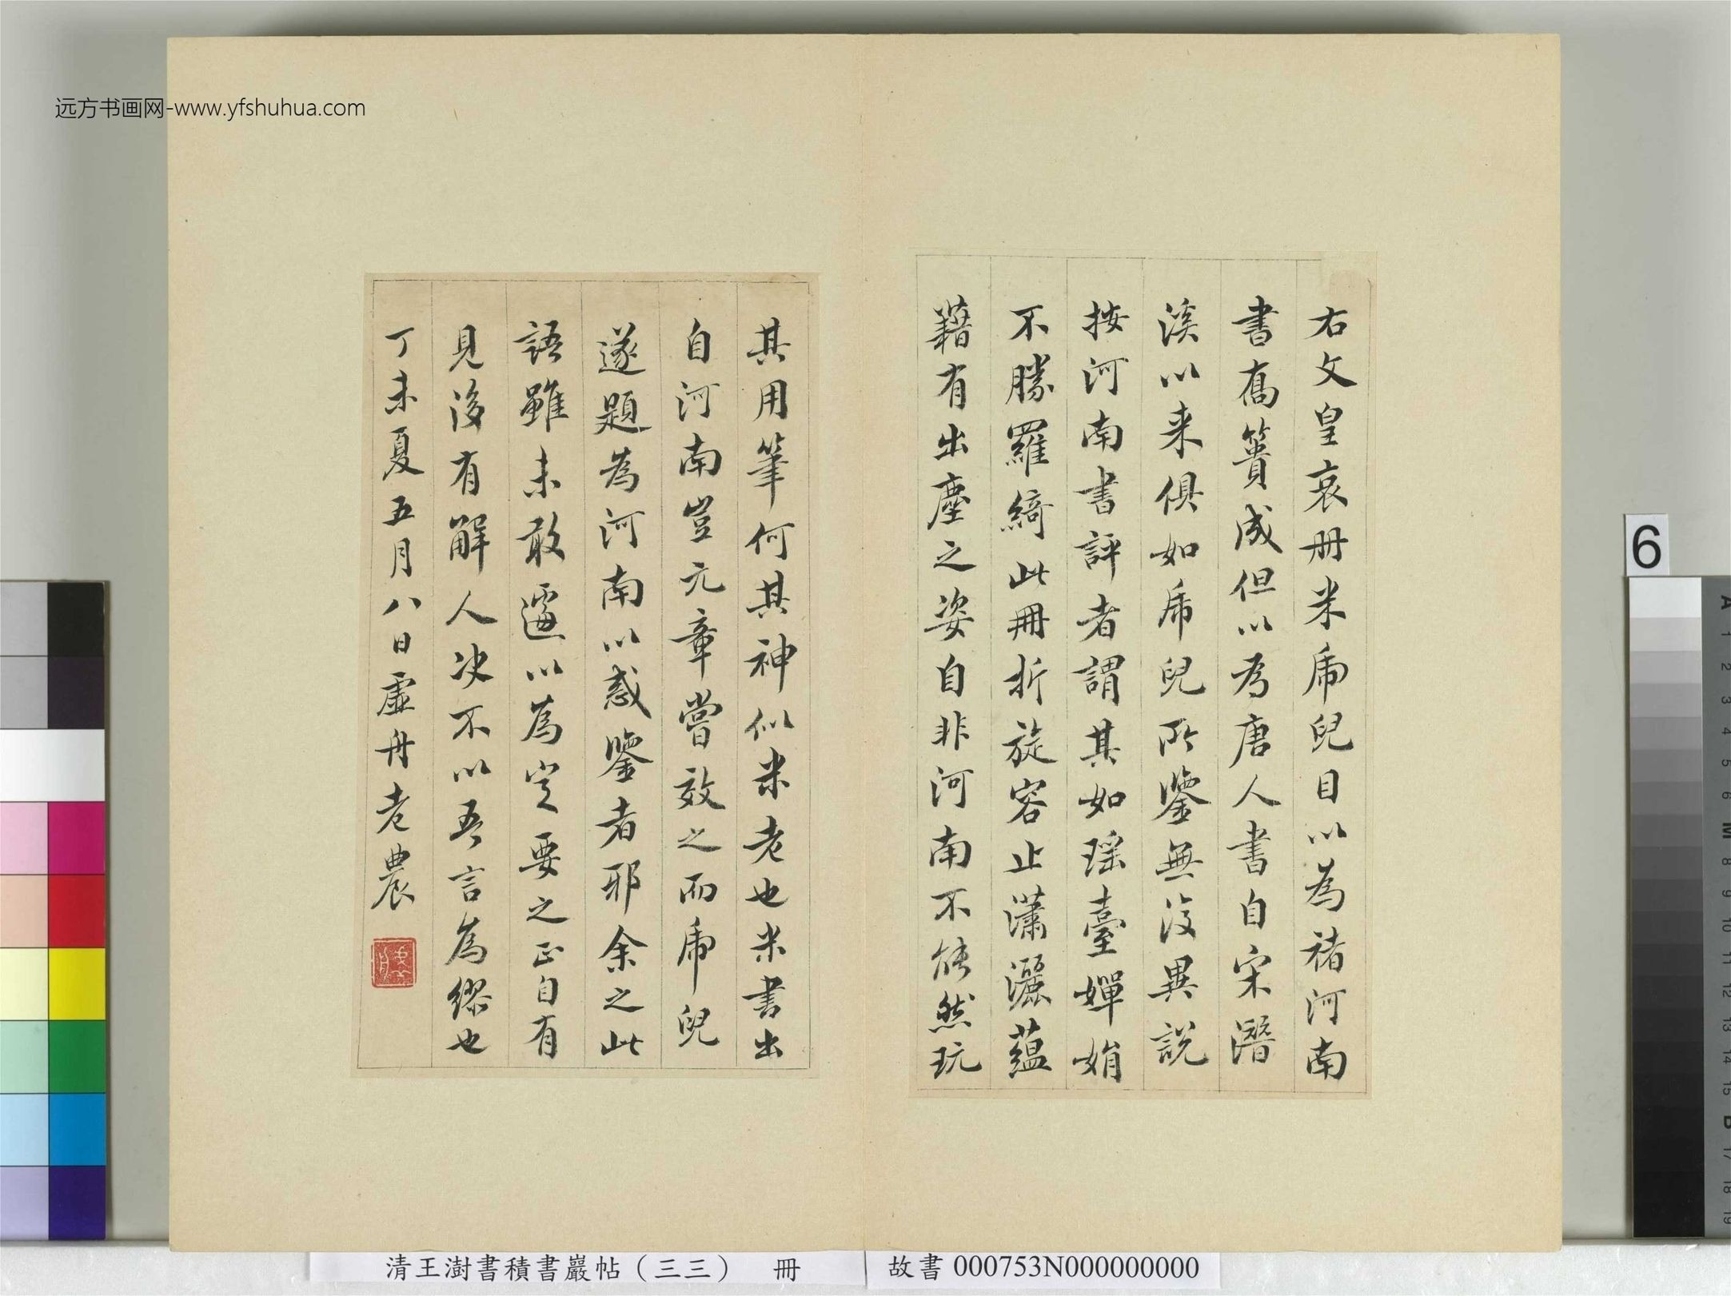 远方书画网-www.yfshuhua.com
右文皇哀册米虎兒目以為褚河南
書舊簣成但以為唐人書自宋潛
溪以来俱如虎兒所鑒無後異説
按河南書評者謂其如瑶臺嬋娟
不勝羅綺此冊折旋容止瀟灑蘊
藉有出塵之姿自非河南不能然玩
其用筆何其神似米老也米書出
自河南豈元章嘗效之而虎兒
遂題為河南以惑鑒者邪余之此
語雖未敢遽以為定要之正自有
見後有解人决不以吾言為繆也
丁未夏五月八日虚舟老農
清王澍書積書巖帖（三三） 冊
故書000753N000000000
6